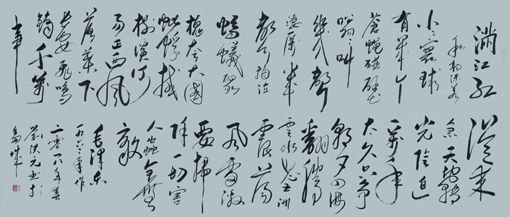 满江红
和郭沫若
小小寰球
有几个
苍蝇碰壁
嗡嗡叫
几声
凄厉几声
抽泣
蚂蚁缘
槐夸大国
蚍蜉撼
树谈何
易正西风
落叶下
长安飞鸣
镝多少
事
从来
急天地转
光阴迫
一万年
太久只争
朝夕四海
翻腾
云水怒五洲
震荡
风雷激
要扫
除一切害
人虫全无
敌
毛泽东
一九六三年作
二零一八年春
刘洪元书于